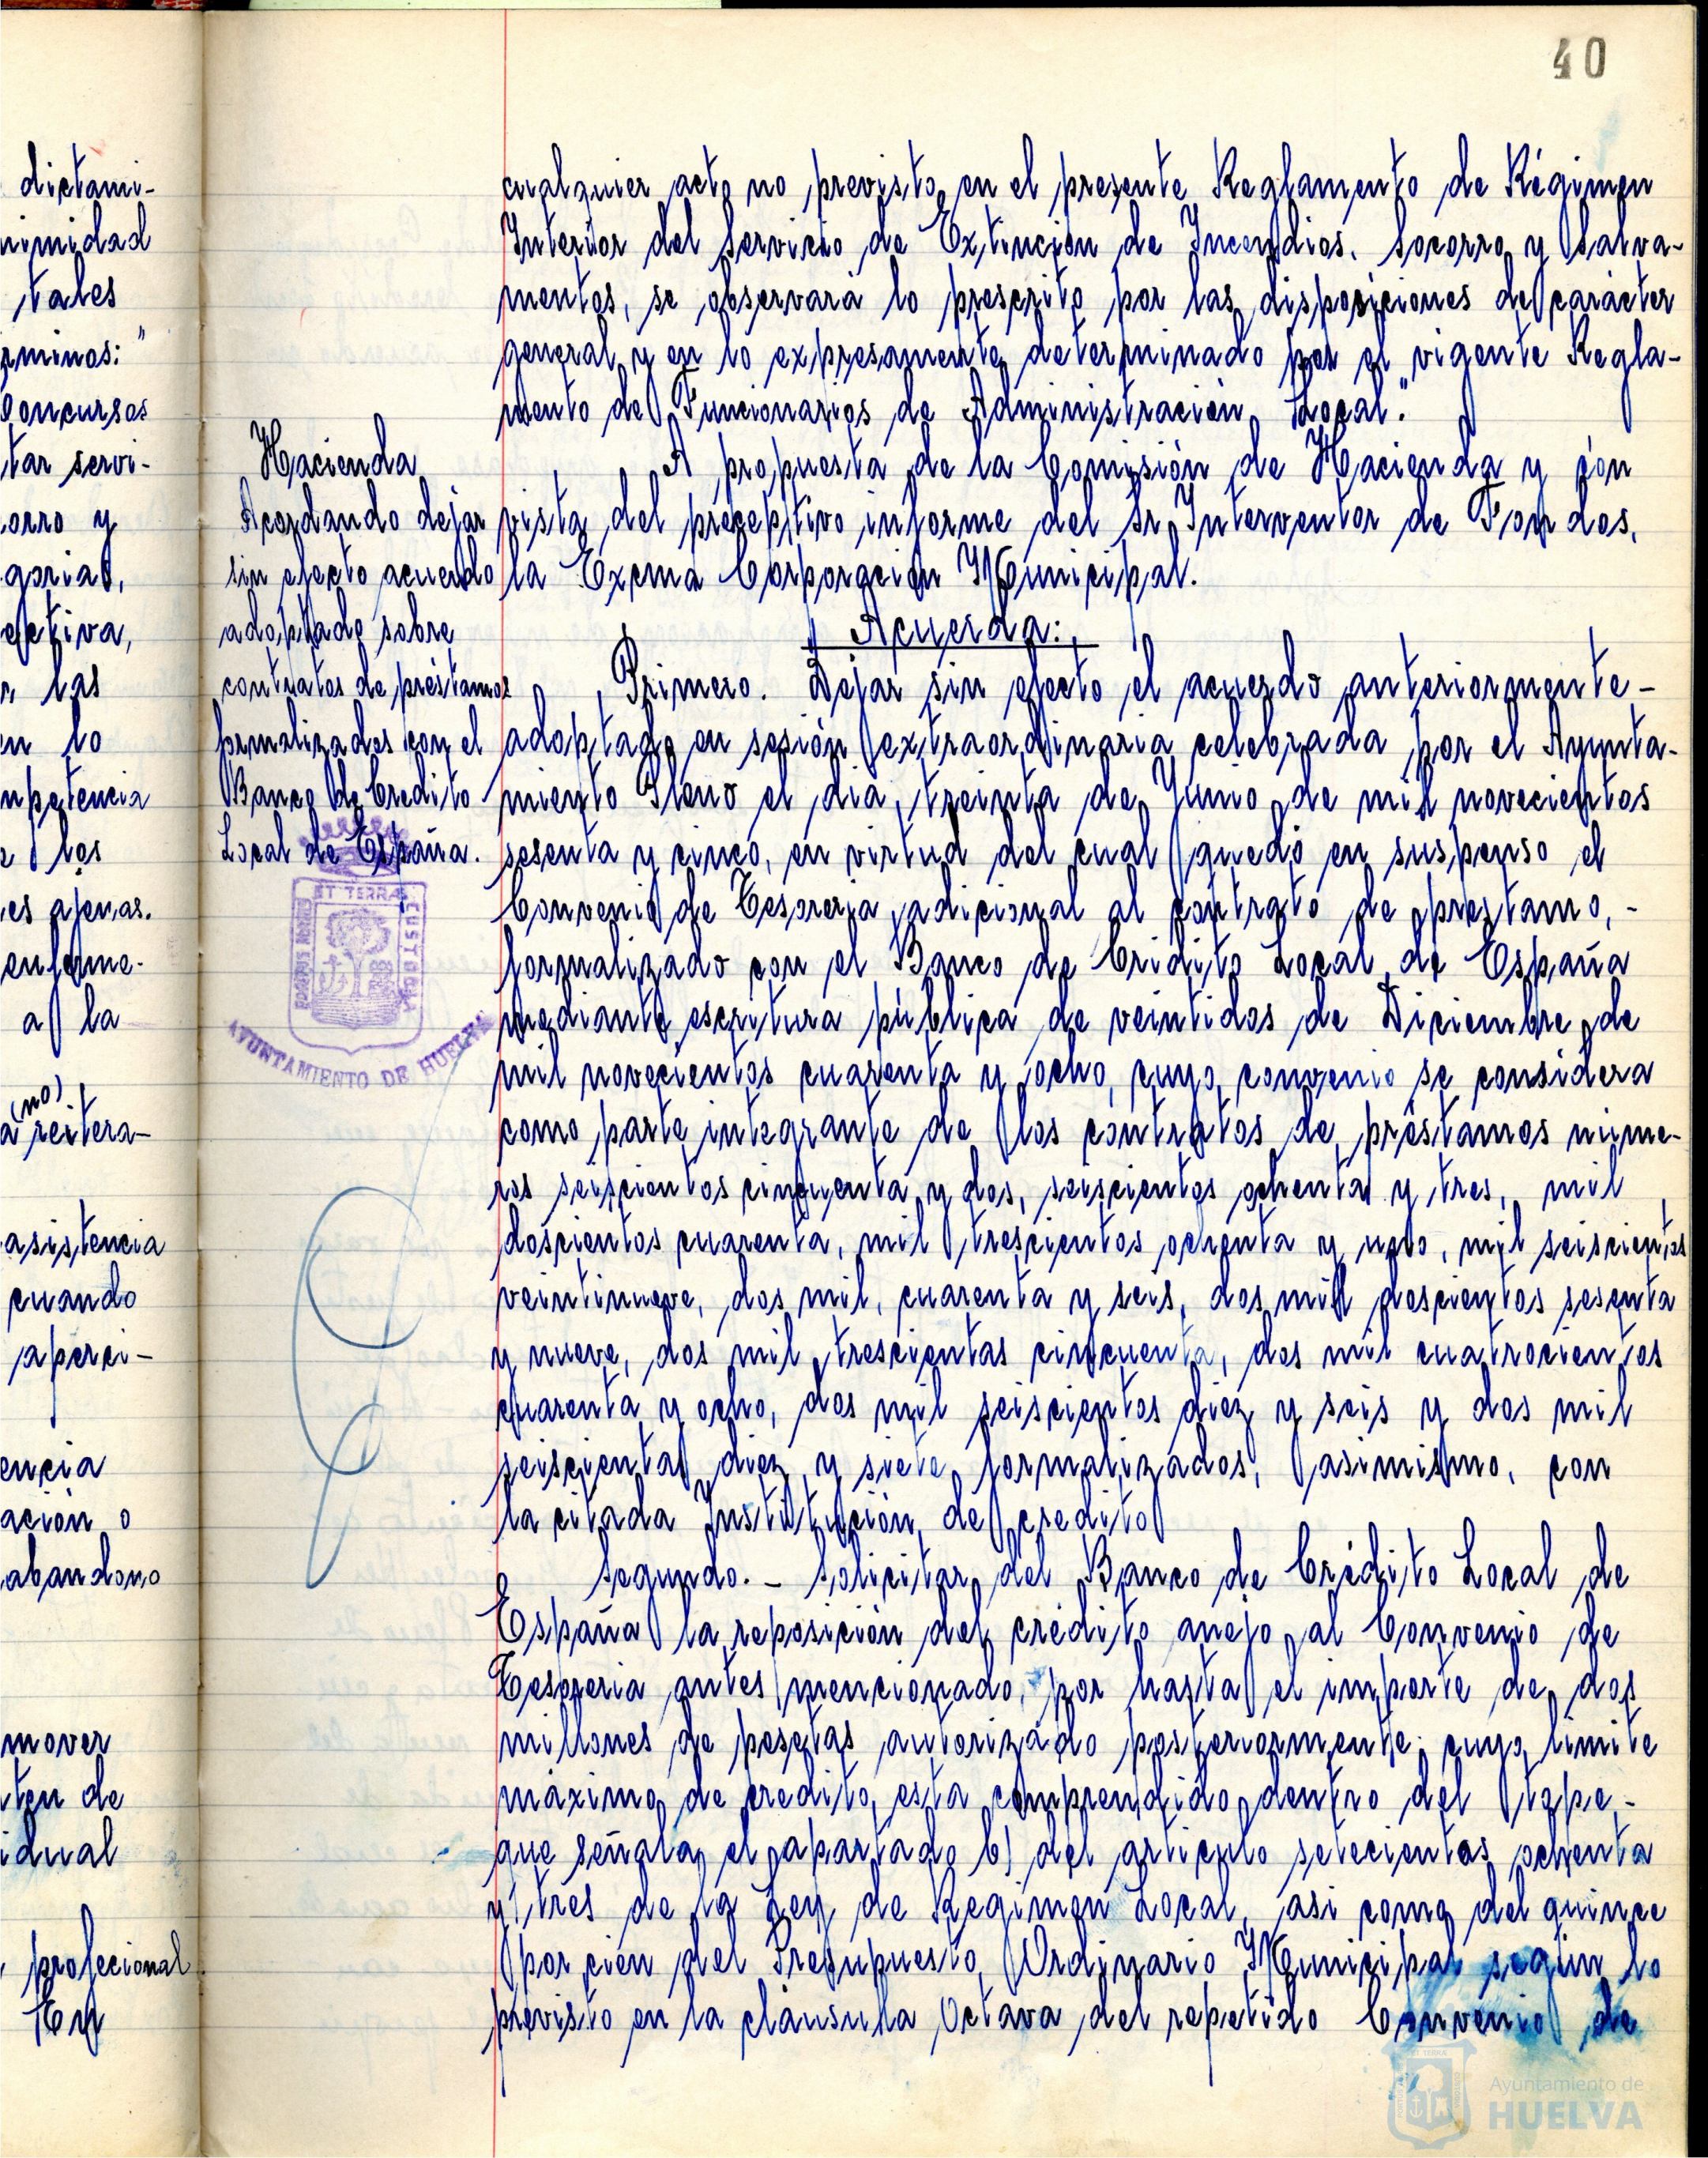 40
dictami-
nimidad
tales
rminos:"
concursos
tar servi-
orro y
gorias,
ectiva,
las
en lo
mpetencia
los
es ajenas.
enferme-
a la
(no)
a reitera-
asistencia
cuando
aperci-
encia
ación o
abandono
mover
ten de
idual
profecional
En
cualquier acto no previsto en el presente Reglamento de Régimen
Interior del servicio de Extinción de Incendios. socorro y salva-
mentos, se observará lo prescrito por las disposiciones de carácter
general y en lo expresamente determinado por el vigente Regla-
mento de Funcionarios de Administración Local."
Hacienda
Acordando dejar
sin efecto acuerdo
adoptado sobre
contratos de préstamos
formalizados con el
Banco de Credito
Local de España.
A propuesta de la Comisión de Hacienda y con
vista del preceptivo informe del Sr. Interventor de Fondos,
la Excma Corporación Municipal.
Acuerda:
Primero. Dejar sin efecto el acuerdo anteriormente-
adoptado en sesión extraordinaria celebrada por el Ayunta-
miento Pleno el dia treinta de Junio de mil novecientos
sesenta y cinco, en virtud del cual quedó en suspenso el
Convenio de Tesoreria adicional al contrato de prestamo, -
formalizado con el Banco de Crédito Local de España
mediante escritura pública de veintidos de Diciembre de
mil novecientos cuarenta y ocho, cuyo convenio se considera
como parte integrante de los contratos de préstamos núme-
ros seiscientos cincuenta y dos, seiscientos ochenta y tres, mil
doscientos cuarenta, mil trescientos ochenta y uno, mil seiscientos
veintinueve, dos mil, cuarenta y seis, dos mil doscientos sesenta
y nueve, dos mil trescientas cincuenta, dos mil cuatrocientos
cuarenta y ocho, dos mil seiscientos diez y seis y dos mil
seiscienta diez y siete formalizados, asimismo, con
la citada Institución de credito
Segundo. - Solicitar del Banco de Crédito Local de
España la reposición del crédito anejo al Convenio de
Tesoreria antes mencionado, por hasta el importe de dos
millones de pesetas autorizado posteriormente; cuyo limite
máximo de credito, está comprendido dentro del tope -
que señala el apartado b) del artículo setecientas ochenta
y tres de la Ley de Regimen Local, asi como del quince
por cien del Presupuesto Ordinario Municipal según lo
previsto en la cláusula Octava del repetido Convenio de
ET TERRAE CUSTODIA
PORTUS MARIS
AYUNTAMIENTO DE HUELVA
Ayuntamiento de
HUELVA